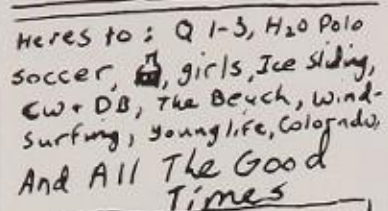 Heres to: Q 1-3, H₂O Polo
soccer, , girls, Ice sliding,
CW + DB, The Beach, Wind-
surfing, Younglife, Colorado,
And All The Good
Times